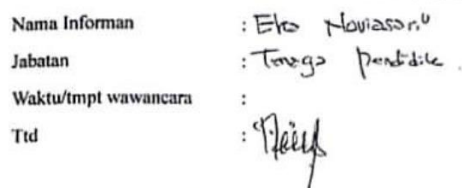 Nama Informan : Eka Noviasari
Jabatan : Tenaga pendidik
Waktu/tmpt wawancara :
Ttd :